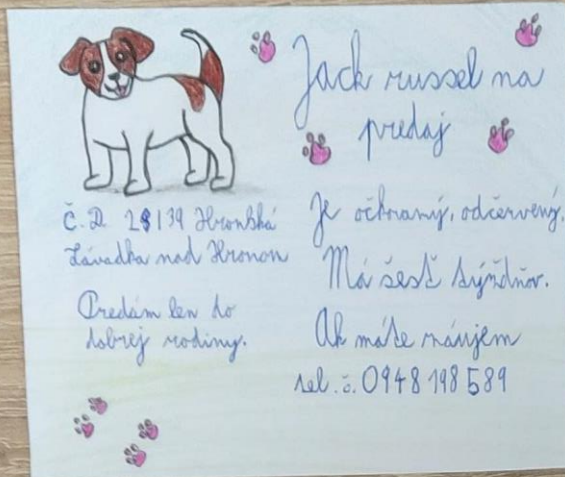 Jack russel na
predaj
Č.D. 28139 Hronská
Závadka nad Hronon
Predám len do
dobrej rodiny.
Je očkraný, odčervený.
Má šesť týždňov.
Ak máte záujem
tel. č. 0948 198 589